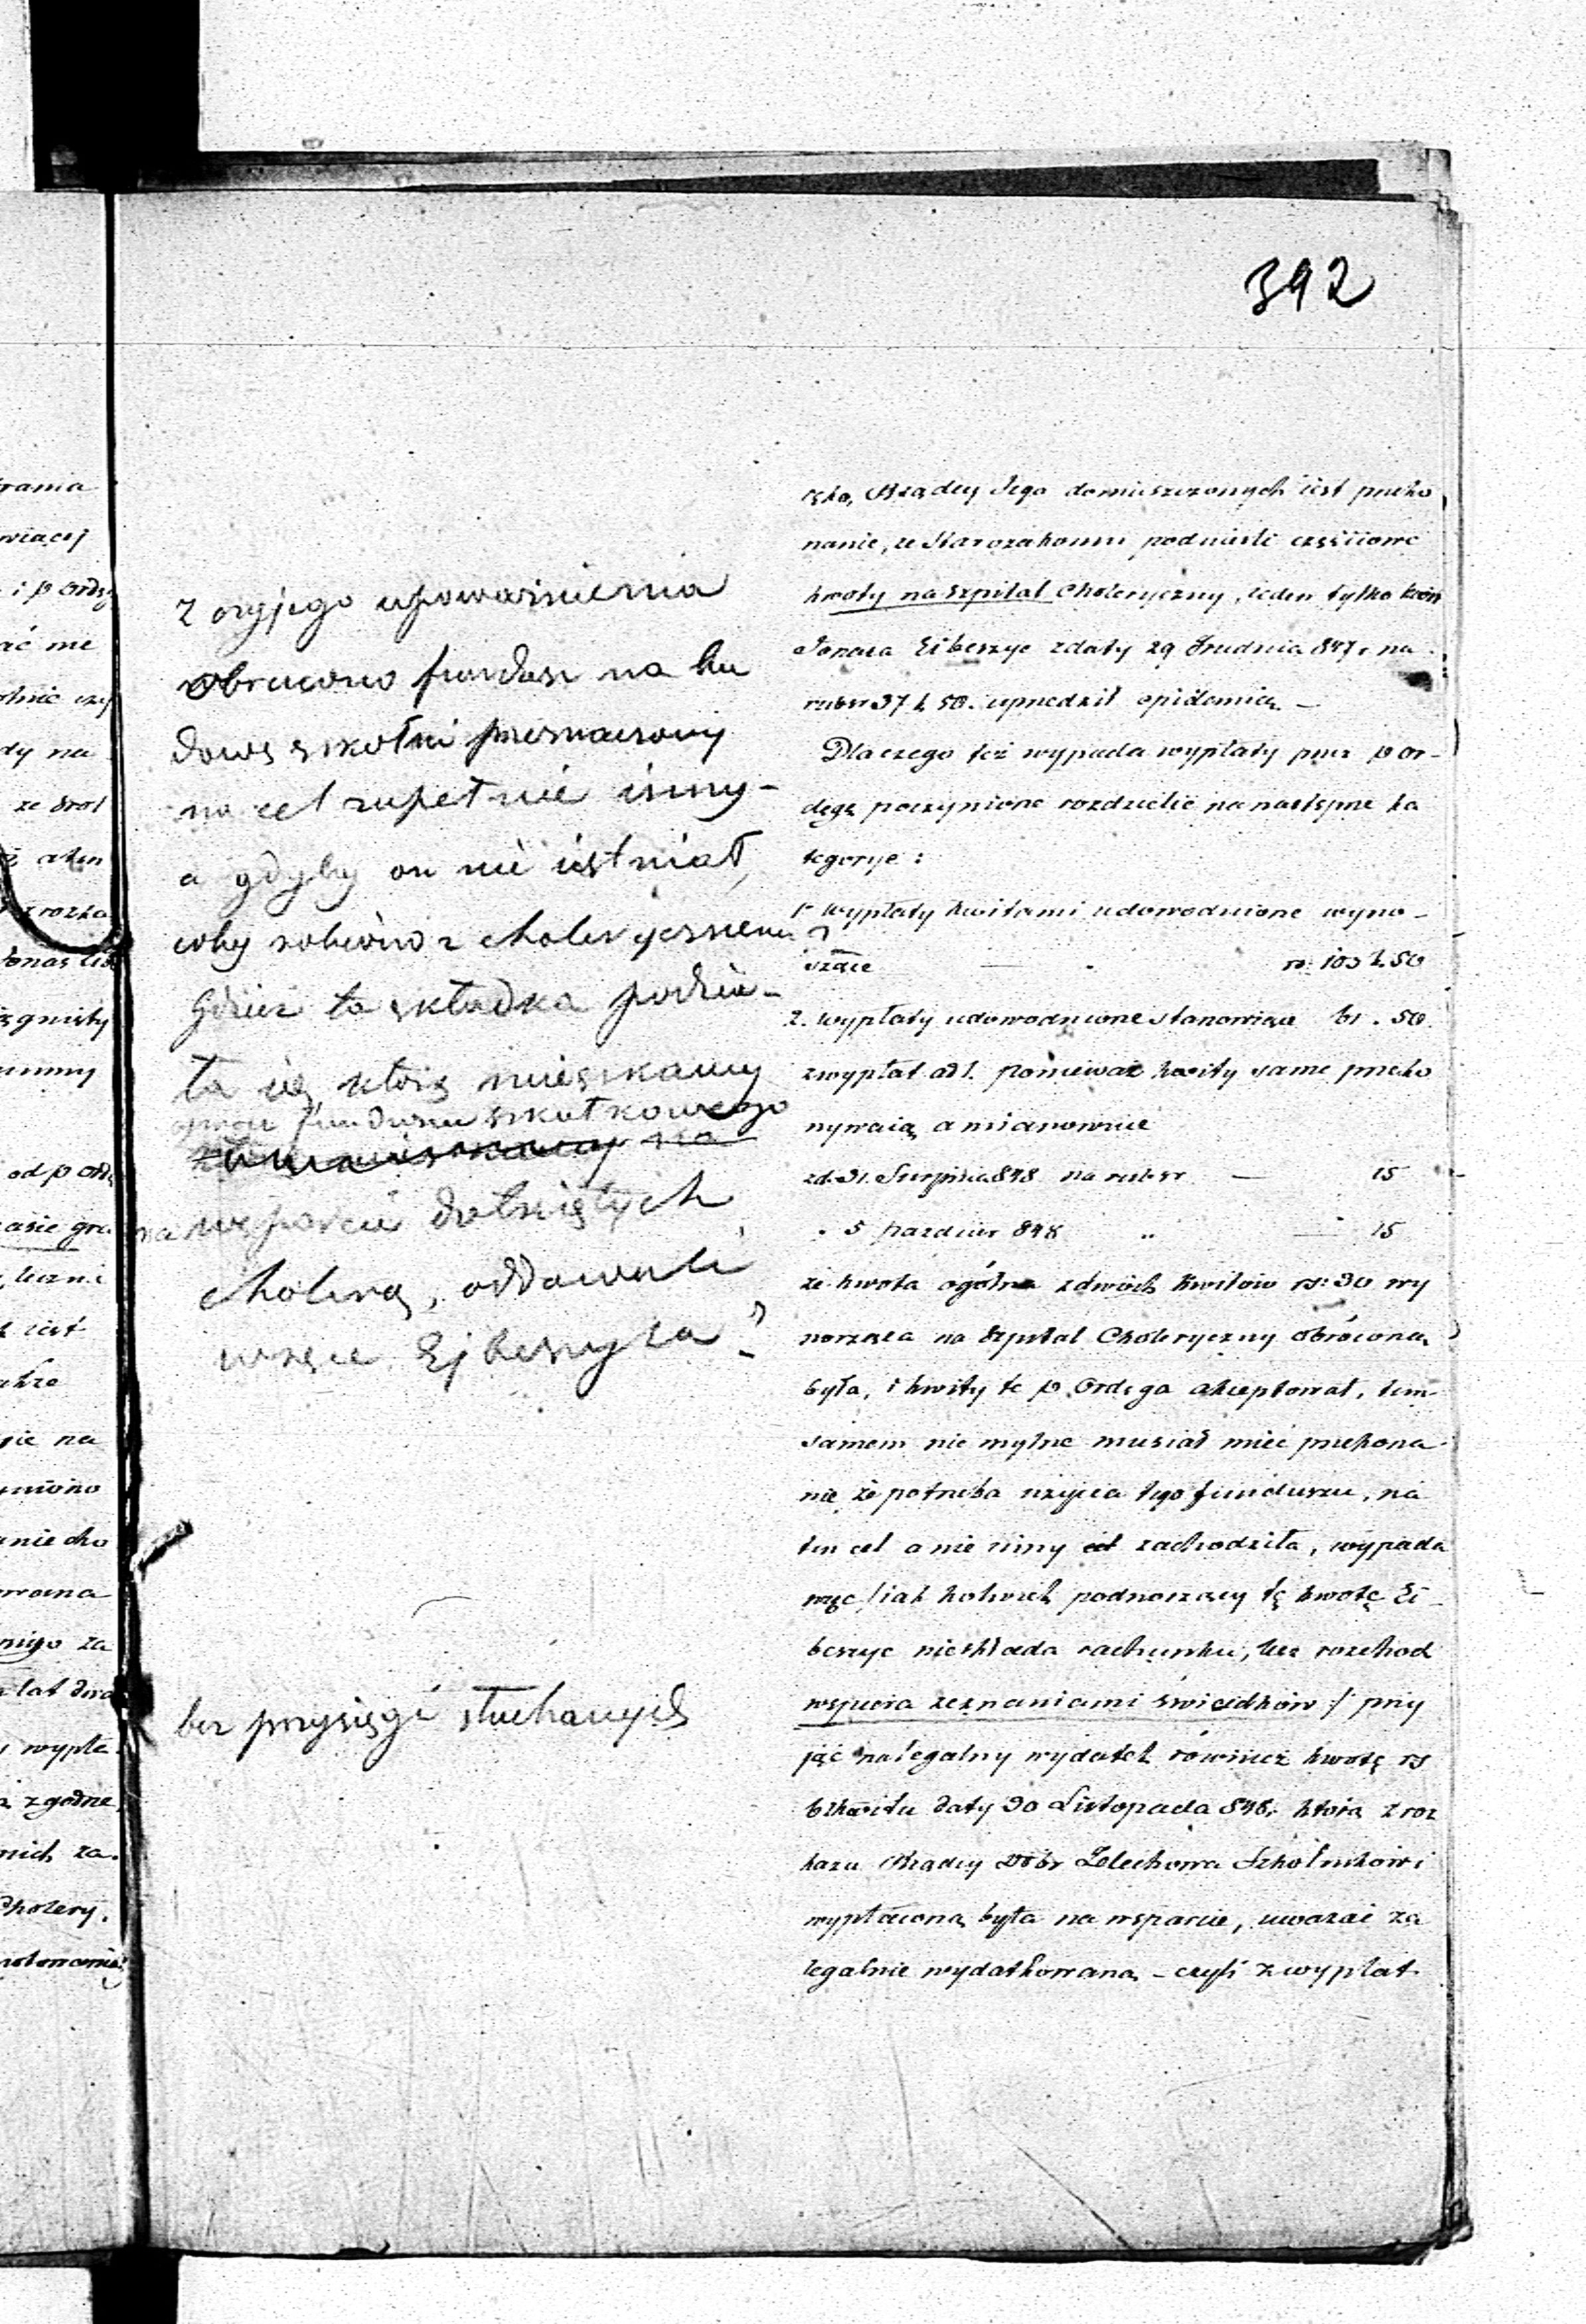 392
z czyjego upoważnienia
obrucono fundusz na bu
dowę szkółki przeznaczony
na cel zupełnie inny -
a gdyby on nie istniał,
coby robiono z cholerycznemi?
Gdzież ta składka podzia-
ła się, którą mieszkańcy
funduszu szkatkowego
na wsparcie dotkniętych
cholerą, oddawali
w ręce Ejbeszyca?
bez przysięgi słuchanych
Rządcy Jego domieszczonych iest przeko
nanie, że Starozakonni podnieśli częściowe
kwoty na szpital Choleryczny, ieden tylko kwit
Jonasa Eibeszyc zdaty 29 Grudnia 847 r. na
rubsr 37 k 50. uprzedził epidemią —
Dlaczego też wypada wypłaty przez p Or-
dęgę poczynione rozdzielić na następne ka
tegorye:
1. wypłaty kwitami udowodnione wyno-
szące — rs. 103 k. 50
2. wypłaty udowodnione stanowiące 61 . 50.
z wypłat ad 1. ponieważ kwity same przeko
nywaią a mianowicie
zd. 31. Sierpnia 848 na rubsr — 15
" 5 pazdzier 848 " — 15
że kwota ogólna zdwóch kwitów rs: 30 wy
noszącą na Szpital Choleryczny obrócona
była, i kwity te p. Ordęga akceptował, tem
samem nie mylne musiał mieć przekona
nie że potrzeba użycia tego funduszu, na
ten cel a nie inny cel zachodziła, wypada
więc /: iak kolwiek podnoszący tę kwotę Ei-
beszyc nieskłada rachunku, lecz rozchod
wspiera zeznaniami świadków :/ przy
jąć na legalny wydatek również kwotę rs
6 zkwitu daty 30 Listopada 848, która z roz
kazu Rządcy Dóbr Żelechowa Szkólnikowi
wypłaconą była na wsparcie, uważać za
legalnie wydatkowaną - czyli z wypłat